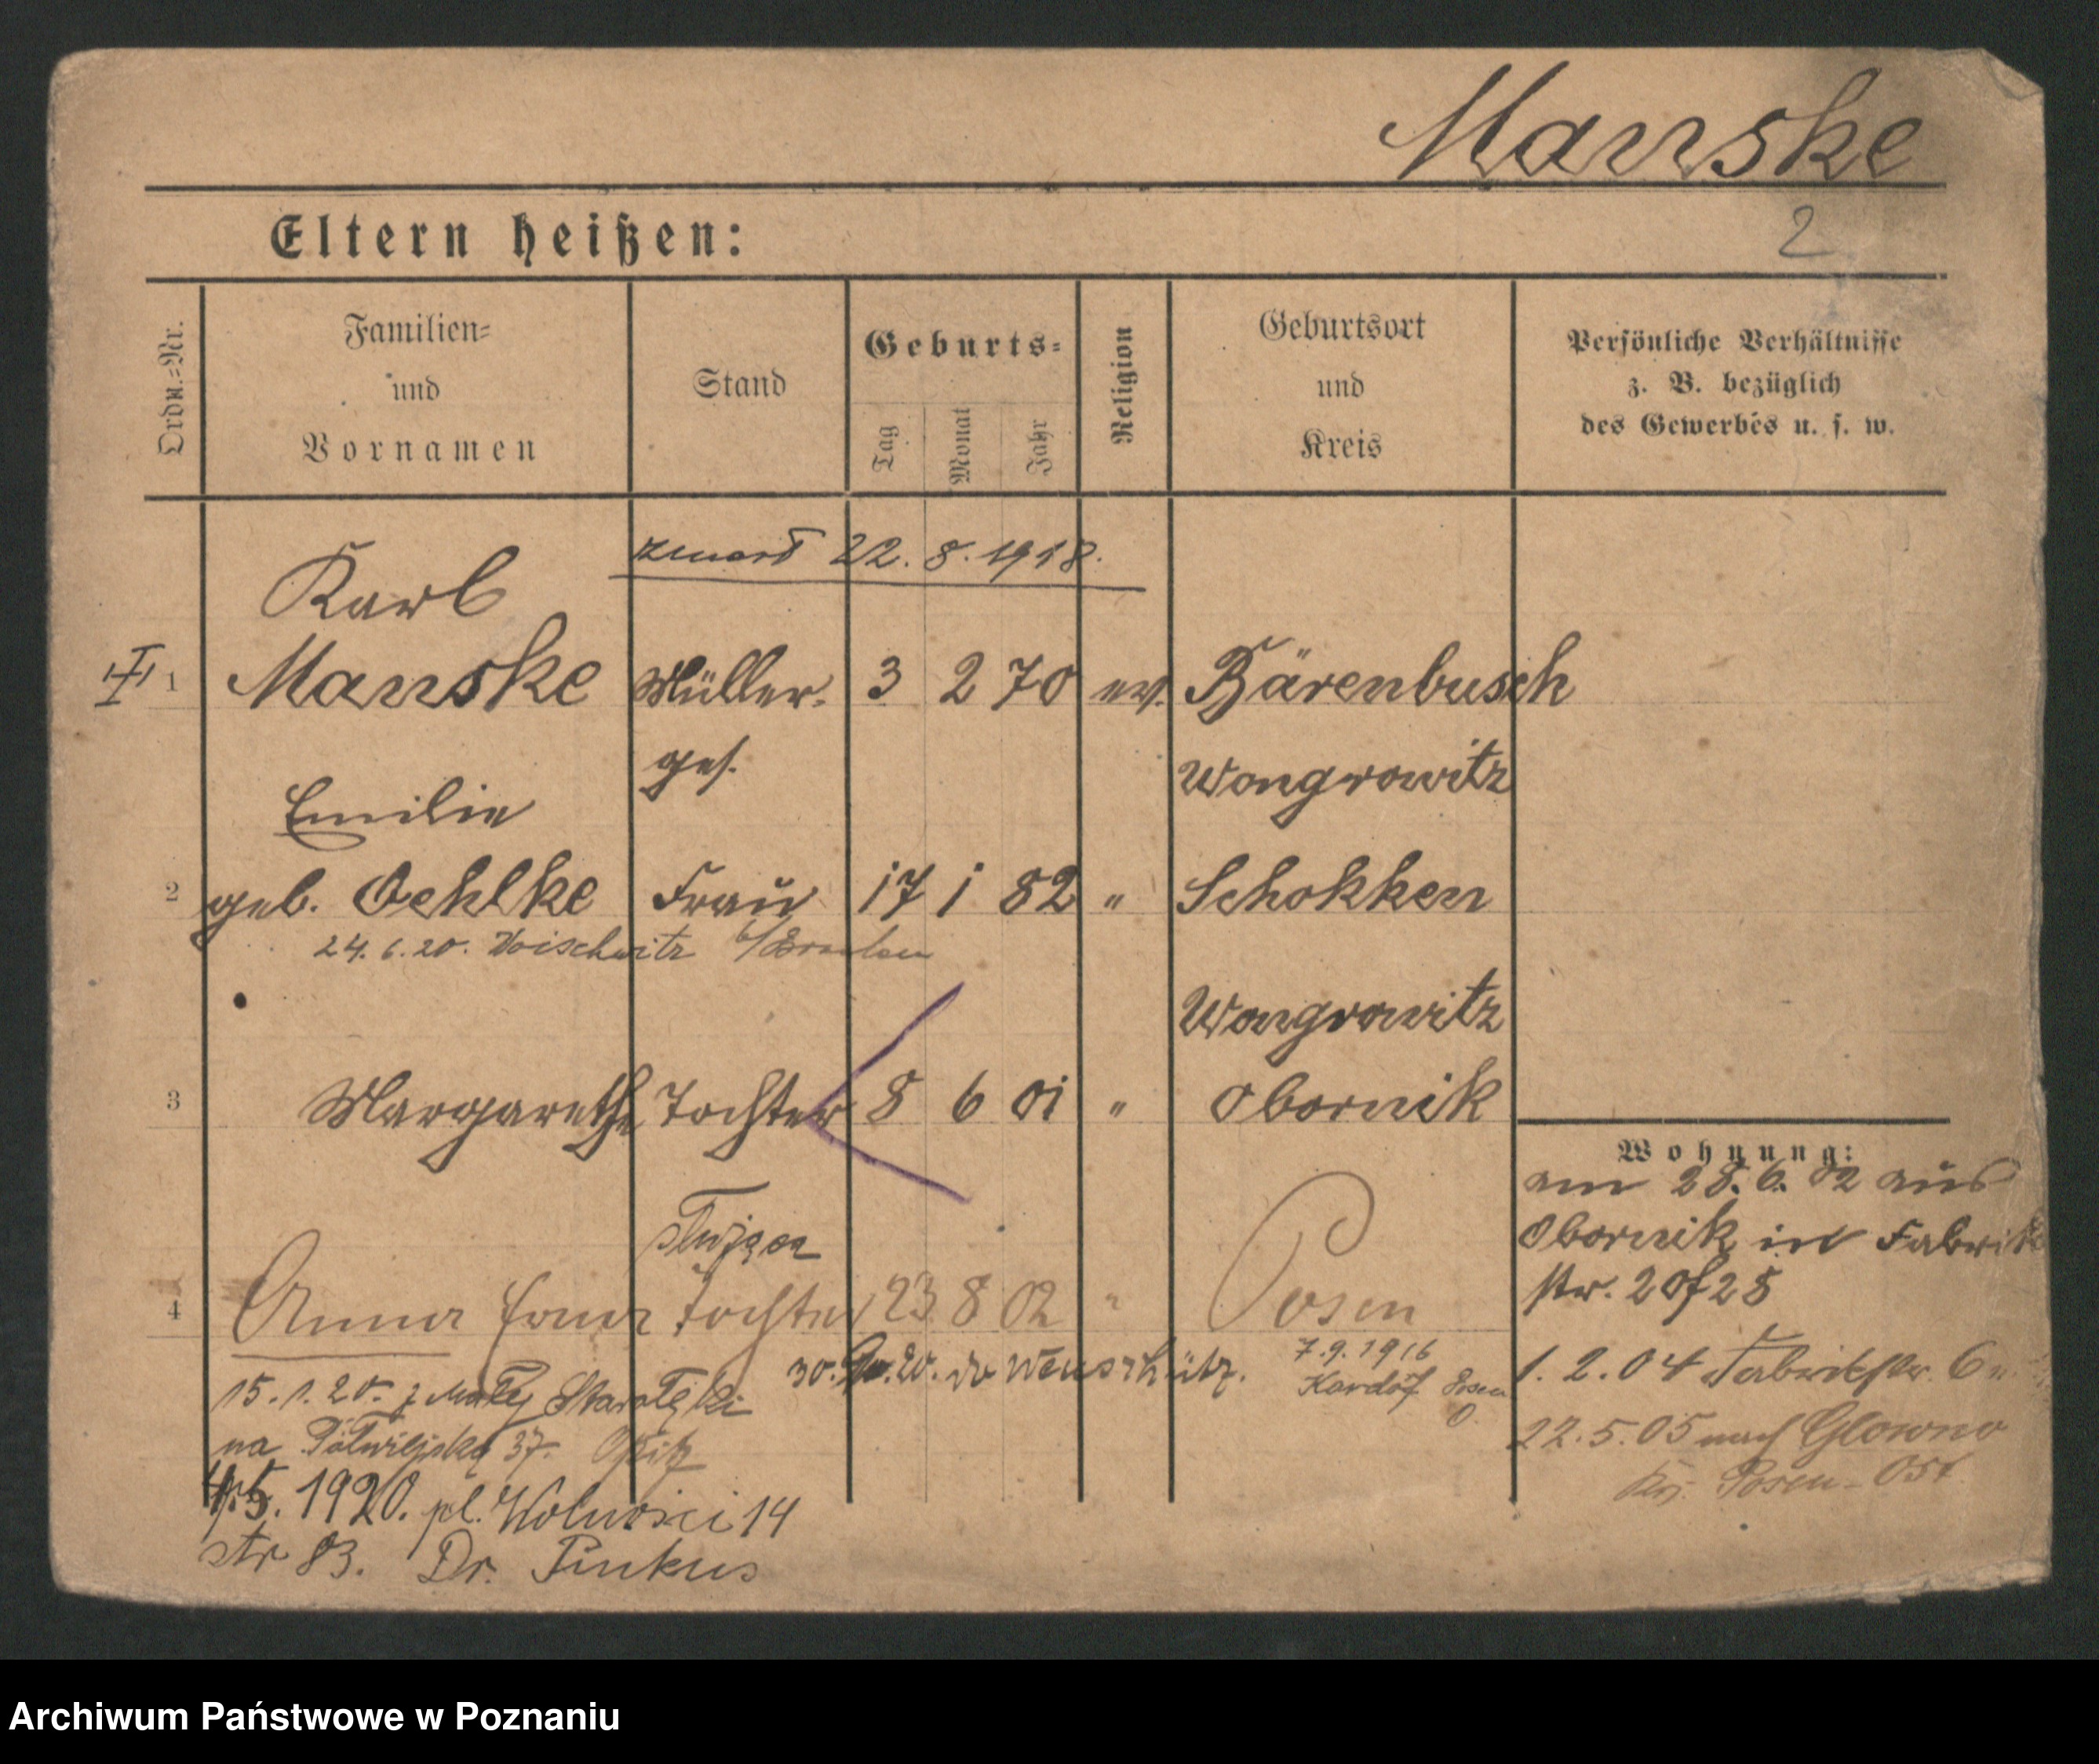 Manske
2
Eltern heißen:
Ordn.=Nr.
Familien=
und
Vornamen
Stand
Geburts=
Tag
Monat
Jahr
Religion
Geburtsort
und
Kreis
Persönliche Verhältnisse
z. B. bezüglich
des Gewerbes u. s. w.
zmarł 22.8.1918.
Karl
1 Manske Müller. 3 2 70 ev. Bärenbusch
ges. Wongrowitz
Emilie
2 geb. Oehlke Frau 17 1 82 " Schokken
24.6.20. Woischwitz b/Breslau
Wongrowitz
3 Margarethe Tochter 8 6 01 " Obornik
Wohnung:
am 28.6.02 aus
Obornik in Fabrik
str. 28
4 Anna Tochter 23 8 02 " Posen
7.9.1916
30. 20. do
1.2.04 Fabrikstr. 6
15.1.20. z Małej
22.5.05 nach Glowno
na Półwiejską 37. Opitz
Krs. Posen-Ost
5. 1920. pl. Wolności 14
str 83. Dr. Pinkus
Archiwum Państwowe w Poznaniu